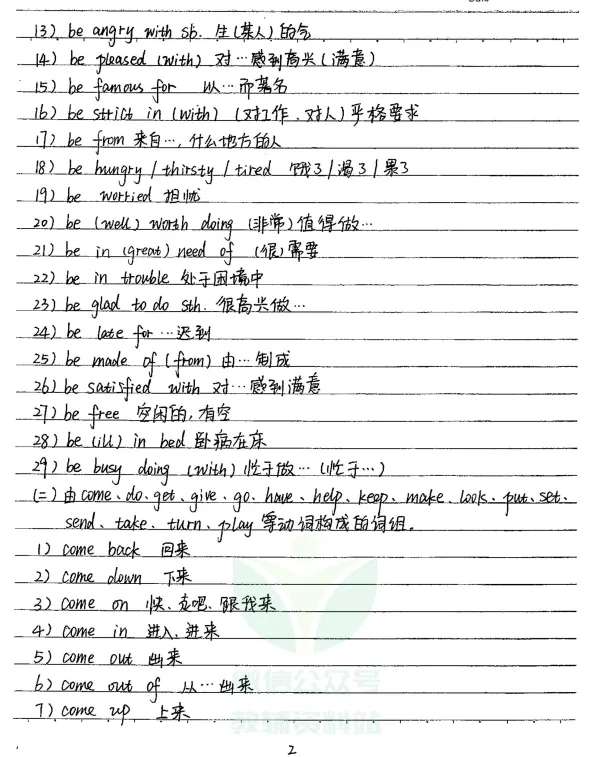 13) be angry with sb. 生(某人)的气
14) be pleased (with) 对…感到高兴(满意)
15) be famous for 以…而著名
16) be strict in (with) (对工作、对人)严格要求
17) be from 来自…, 什么地方的人
18) be hungry / thirsty / tired 饿了/渴了/累了
19) be worried 担忧
20) be (well) worth doing (非常)值得做…
21) be in (great) need of (很)需要
22) be in trouble 处于困境中
23) be glad to do sth. 很高兴做…
24) be late for …迟到
25) be made of (from) 由…制成
26) be satisfied with 对…感到满意
27) be free 空闲的, 有空
28) be (ill) in bed 卧病在床
29) be busy doing (with) 忙于做… (忙于…)
(二) 由come、do、get、give、go、have、help、keep、make、look、put、set、
send、take、turn、play 等动词构成的词组.
1) come back 回来
2) come down 下来
3) come on 快、走吧、跟我来
4) come in 进入、进来
5) come out 出来
6) come out of 从…出来
7) come up 上来
微信公众号
教辅资料站
2